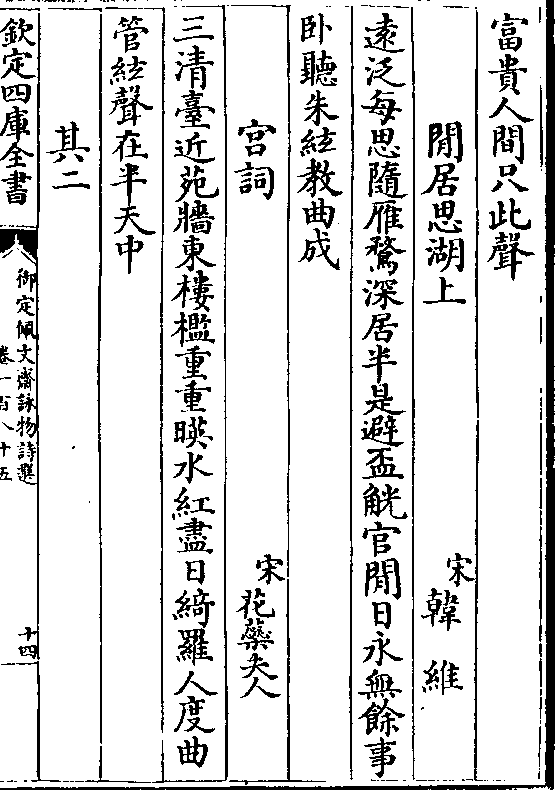 富貴人間只此聲
閒居思湖上
宋韓維
逺泛每思隨雁鶩深居半是避盃觥官閒日永無餘事
卧聽朱絃教曲成
宫詞
宋花蘂夫人
三清臺近苑牆東樓檻重重暎水紅盡日綺羅人度曲
管絃聲在半天中
其二
欽定四庫全書
御定佩文齋詠物詩選
卷一百八十五
十四